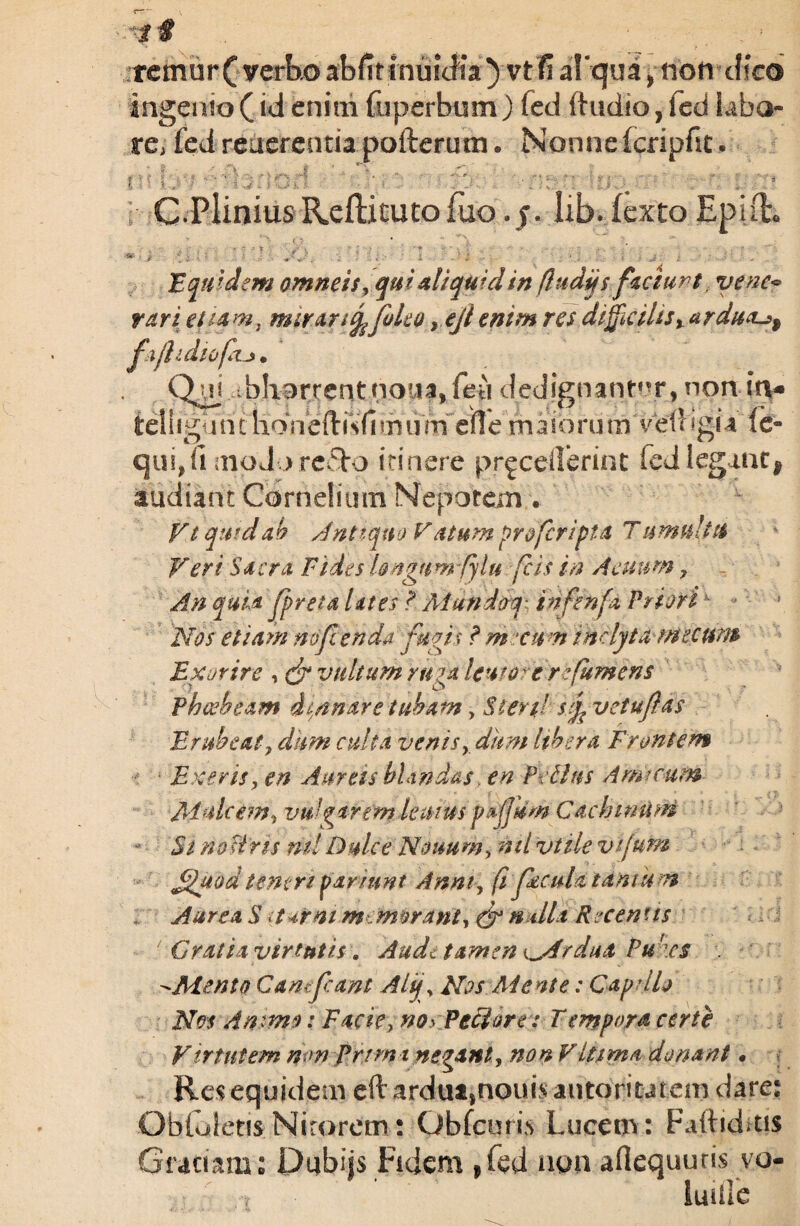 remur (verbo absit inuidia) vt si al'qua, non dico
ingenio (id enim superbum) sed studio, sed labo-
re, sed reuerentia posterum. Nonne scripsit.
C. Plinius Restituto suo . 5. lib. sexto Epist.
Equidem omneis, qui aliquid in studijs faciunt, vene-
rari etiam, mirariq; soleo, est enim res difficilis, ardua,
fastidiosa.
Qui abhorrent noua, seu dedignantur, non in-
telligunt honestissimum esse maiorum vestigia se-
qui, si modo recto itinere pręcesserint sed legant,
audiant Cornelium Nepotem.
Vt quid ab Antiquo Vatum proscripta Tumultu
Veri Sacra Fides longum sylu scis in Aeuum,
An quia spreta lates? Mundoq; infensa Priori
Nos etiam noscenda fugis? mecum inclyta mecum
Exorire, & vultum ruga leuiore resumens
Phœbeam dignare tubam, Steril'sq; vetustas
Erubeat, dum culta venis, dum libera Frontem
Exeris, en Aureis blandas, en Pectus Amicum
Mulcem, vulgarem leuius passum Cachinnum
Si nostris nil Dulce Nouum, nil vtile visum
Quod teneri pariunt Anni, si sæcula tantum
Aurea Saturni memorant, & nulla Recentis
Gratia virtutis. Aude tamen Ardua Pubes
Mento Canescant Alij, Nos Mente: Capillo
Nos Animo: Facie, nos Pectore: Tempora certè
Virtutem non Prima negant, non Vltima donant.
Res equidem est ardua, nouis autoritatem dare:
Obsoletis Nitorem: Obscuris Lucem: Fastiditis
Gratiam: Dubijs Fidem, sed non assequutis vo-
luisse